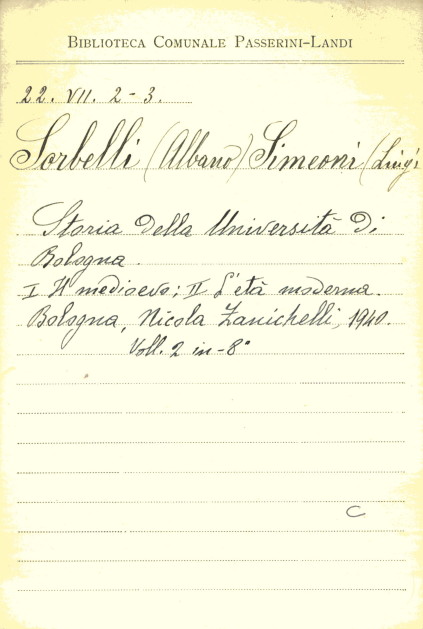 BIBLIOTECA COMUNALE PASSERINI-LANDI
22. VII. 2-3.
Sorbelli (Albano) Simeoni (Luigi
Storia della Università di
Bologna.
I Il medioevo; II L'età moderna.
Bologna, Nicola Zanichelli, 1940.
Voll. 2 in-8°
C